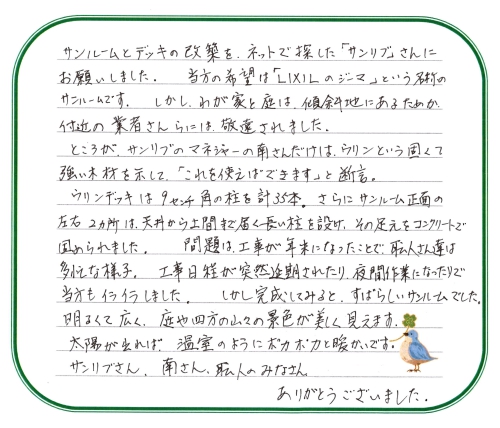 サンルームとデッキの改築を、ネットで探した「サンリブ」さんに
お願いしました。 当方の希望は「LIXILのジーマ」という名称の
サンルームです。 しかし、わが家と庭は、傾斜地にあるためか
付近の業者さんらには、敬遠されました。
ところが、サンリブのマネジャーの南さんだけは、ウリンという固くて
強い木材を示して、「これを使えばできます」と断言。
ウリンデッキは9センチ角の柱を計35本。さらにサンルーム正面の
左右2カ所は、天井から土間まで届く長い柱を設け、その足元をコンクリートで
固められました。 問題は、工事が年末になったことで、職人さん達は
多忙な様子。 工事日程が突然延期されたり、夜間作業になったりで
当方もイライラしました。 しかし完成してみると、すばらしいサンルームでした。
明るくて広く、庭や四方の山々の景色が美しく見えます。
太陽が出れば、温室のようにポカポカと暖かいです。
サンリブさん、南さん、職人のみなさん
ありがとうございました。